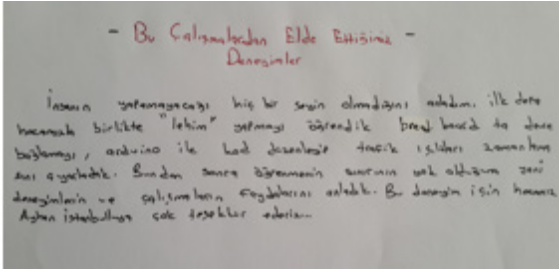 - Bu Çalışmalardan Elde Ettiğimiz -
Deneyimler
İnsanın yapamayacağı hiç bir şeyin olmadığını anladım. ilk defa
hocamızla birlikte "lehim" yapmayı öğrendik bread board ta devre
bağlamayı, arduino ile kod düzenleyip trafik ışıkları zamanlama
sını ayarladık. Bundan sonra öğrenmenin sınırının yok olduğunu yeni
deneyimlerin ve çalışmaların faydalarını anladık. Bu deneyim için hocamız
Ayhan İstanbulluya çok teşekkür ederiz...